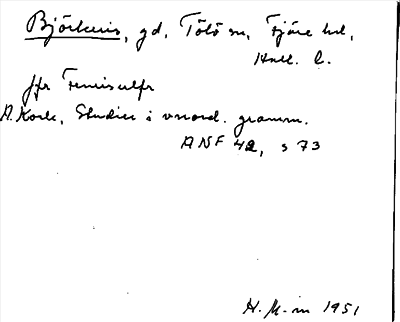 Björkeris, gd, Tölö sn, Fjäre hd,
Hall. l.
jfr Fenrisulfr
A. Kock, Studier i vnord. gramm.
ANF 42, s 73
H. M-m 1951